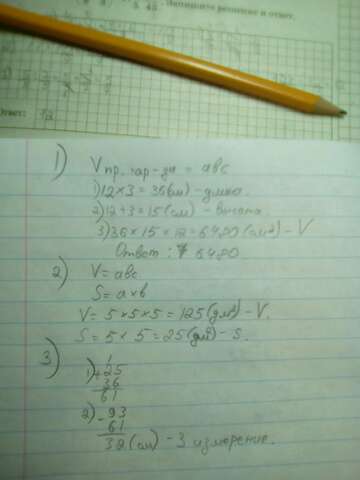 Запишите решение и ответ.
Ответ: 12
1) Vпр. пар-да = авс
1) 12 × 3 = 36 (см) - длина.
2) 12 + 3 = 15 (см) - высота.
3) 36 × 15 × 12 = 6480 (см²) - V
Ответ: 6480.
2) V = авс
S = а × в
V = 5 × 5 × 5 = 125 (дм²) - V.
S = 5 × 5 = 25 (дм²) - S.
3) 1
1) + 25
36
61
2) - 93
61
32 (см) - 3 измерение.